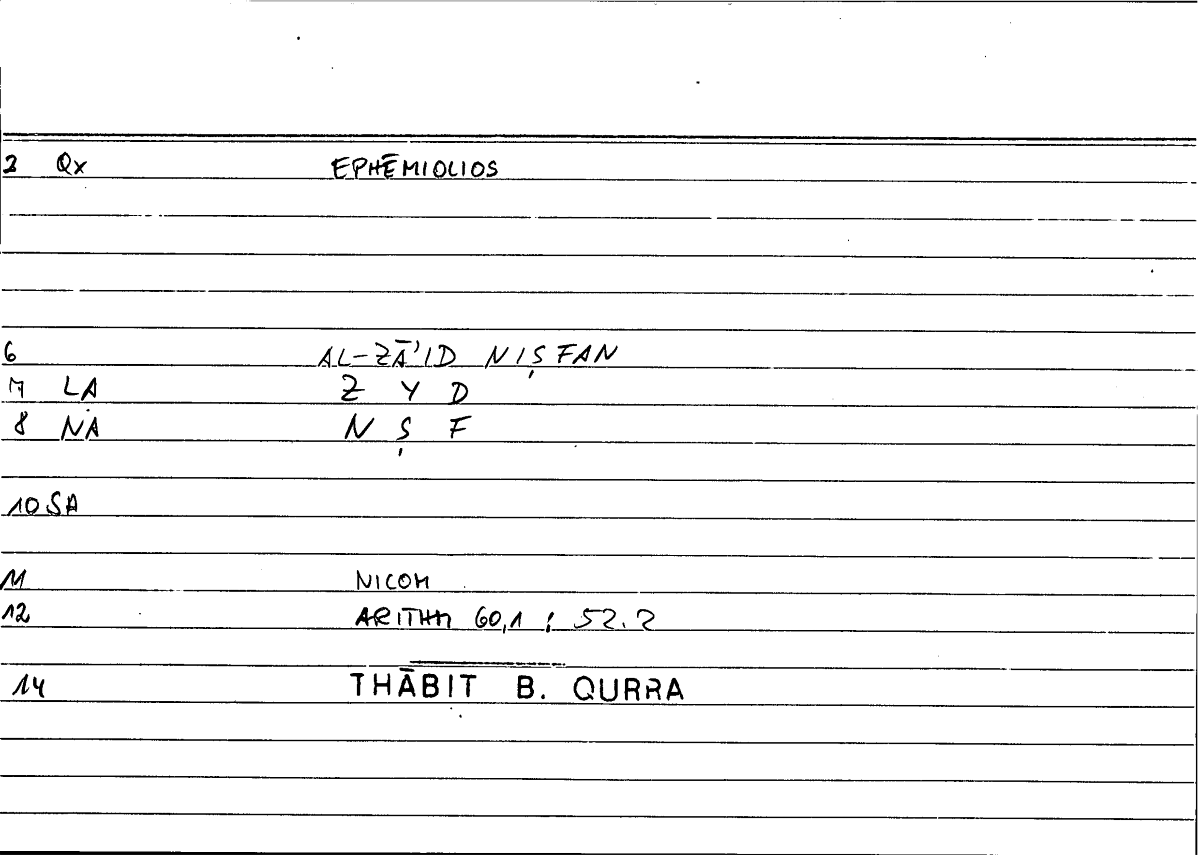 2 Qx EPHĒMIOLIOS
6 AL-ZĀ'ID NIṢFAN
7 LA Z Y D
8 NA N Ṣ F
10 SA
11 NICOM
12 ARITHM 60,1 ; 52.2
14 THĀBIT B. QURRA